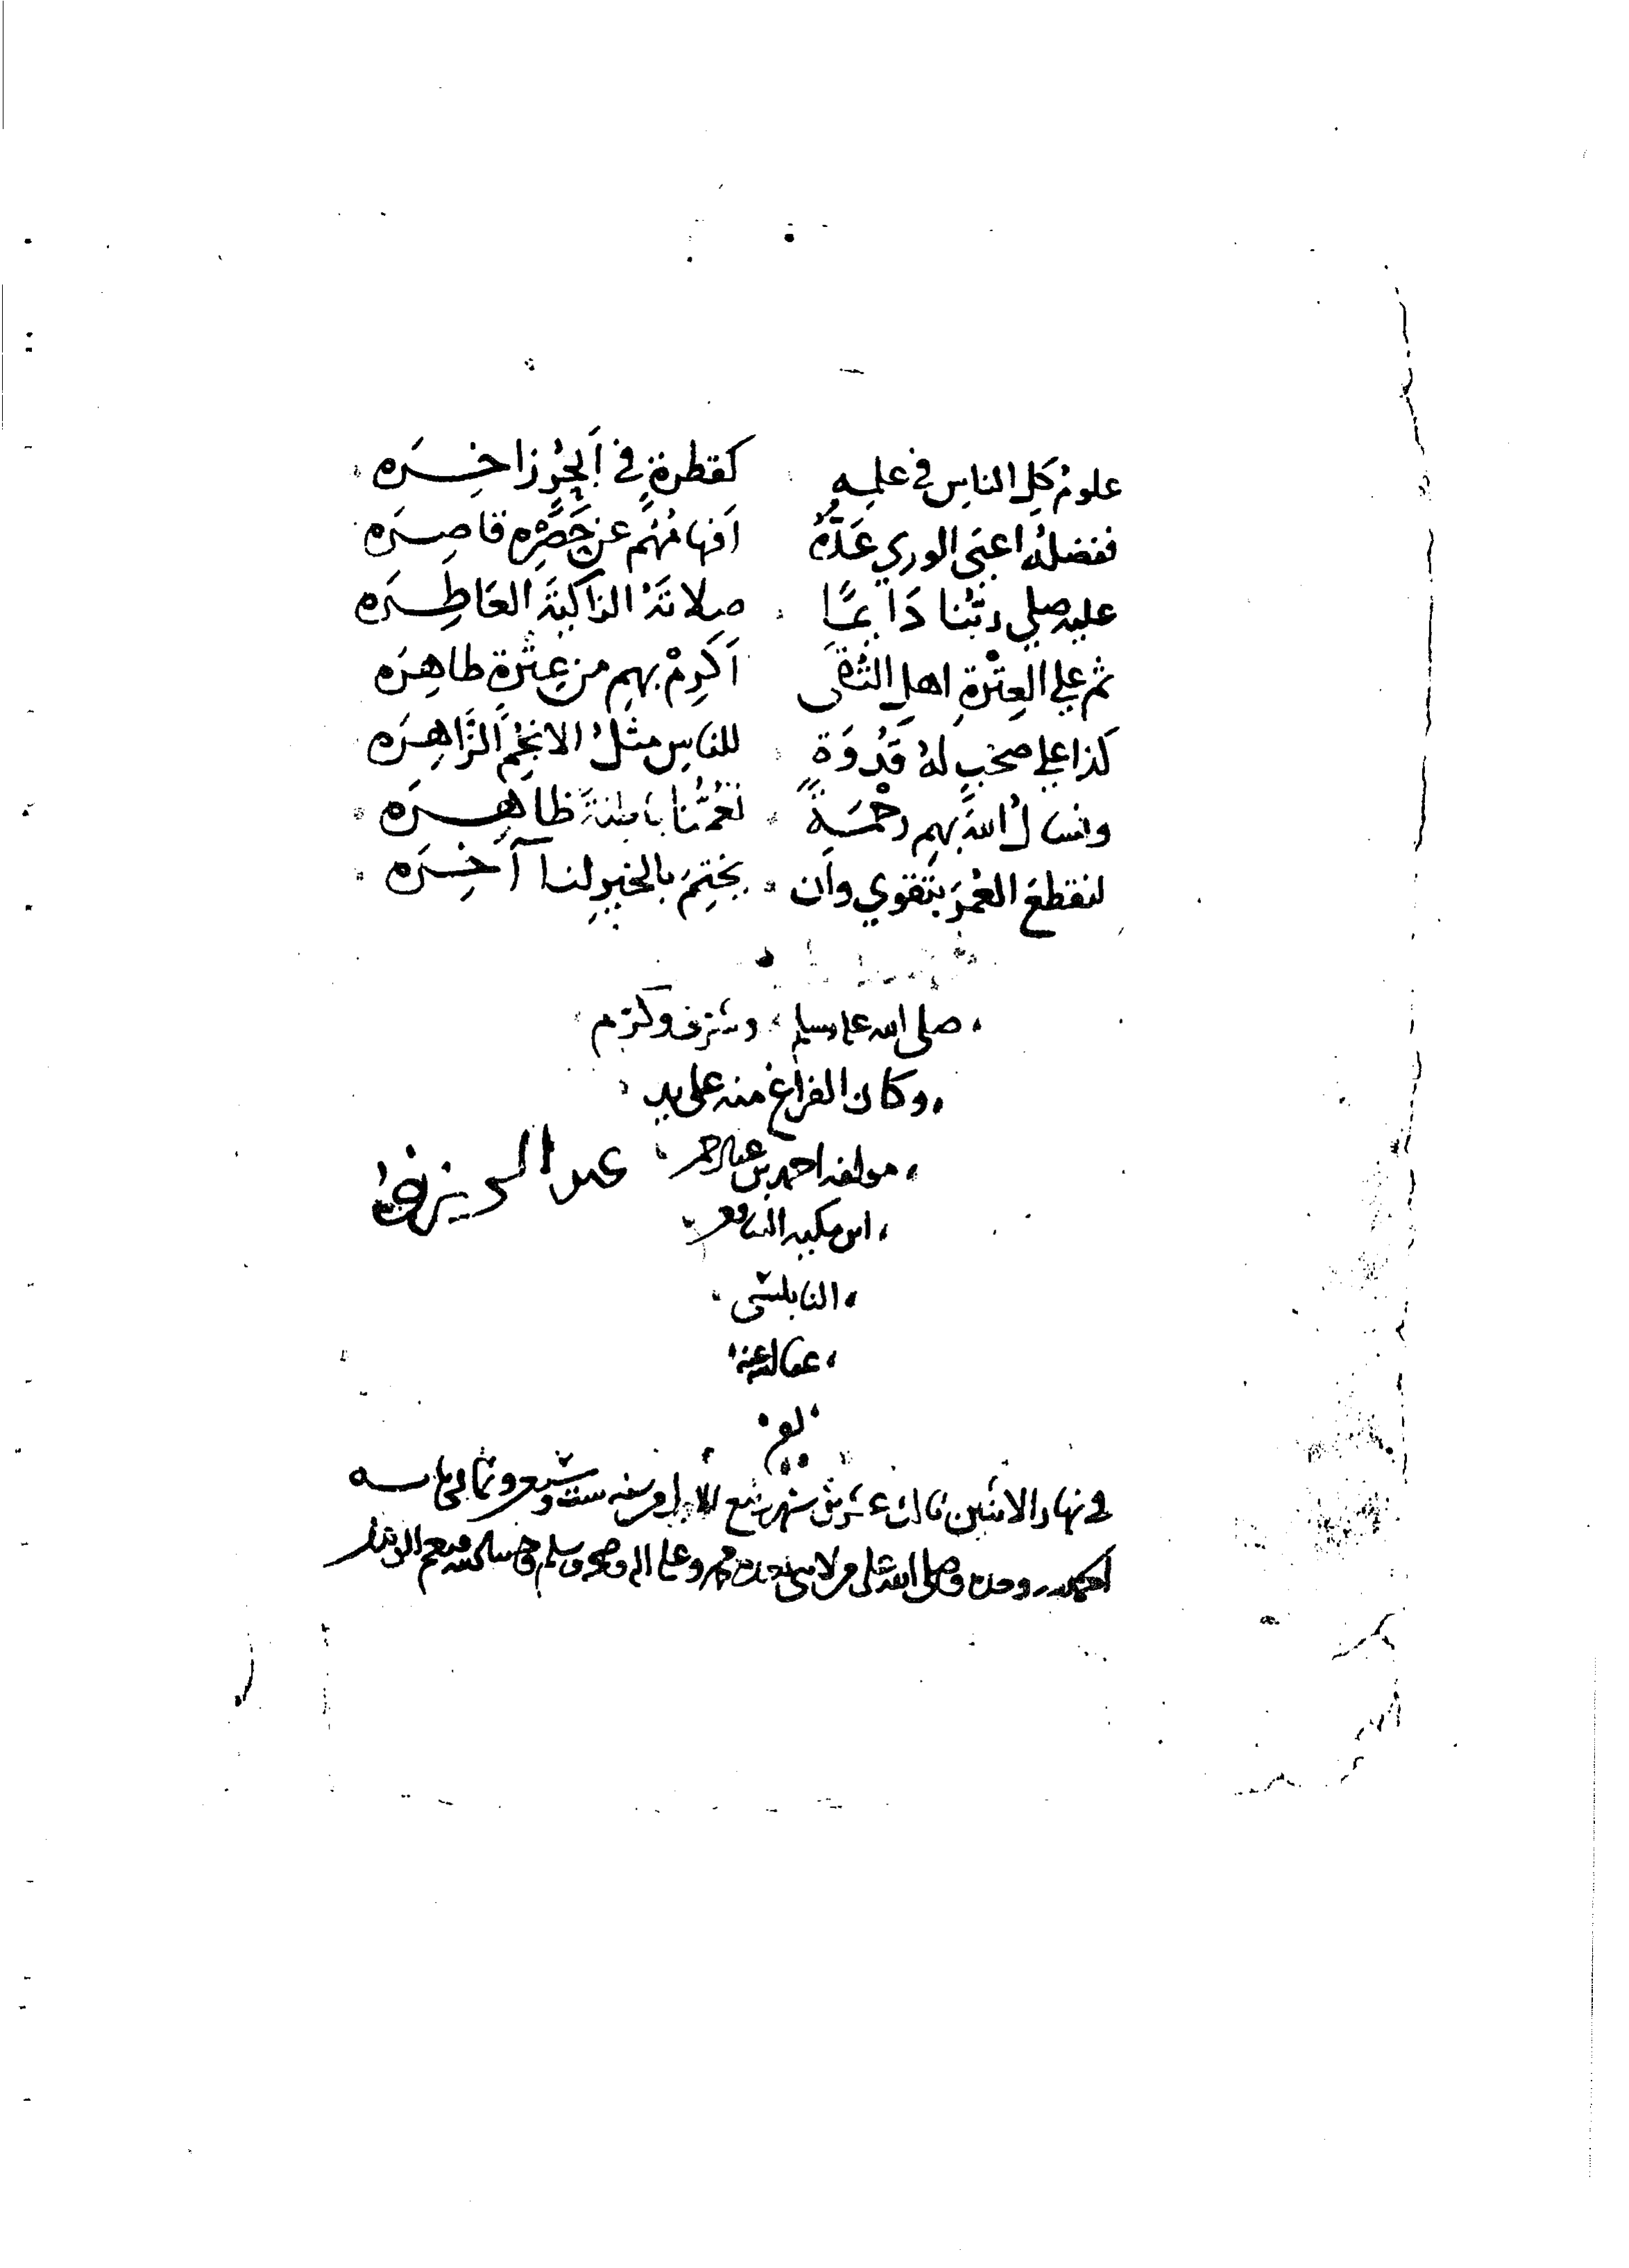 علومُ كلِ الناسِ في علمِه كقطرةٍ في اَبحُرٍ زاخِرَه
ففضلهُ اعيَى الوري عَدُّهُ اَفهامُهُم عن حَصْرِه قاصِرَه
عليه صلي ربُّنا دَايمًا صلاتَهُ الزاكيَةَ العَاطِرَه
ثم علي العِتْرةِ اهلِ التُّقَى اَكرِمْ بهِم من عِتْرةٍ طاهِرَه
كذا علي صحبٍ لهُ قُدْوَةٍ للناسِ مثلُ الانجُمِ الزَّاهِرَه
ونسالُ اللهَ بهِم رحْمَةً تَعُمُّنا باطنةً ظاهِرَه
لنقطعَ العُمْرَ بتَقوي وان يختِمَ بالخيرِ لنا آخِرَه
صلى الله عليه وسلم وشرف وكرم
وكان الفراغ منه على يد
مولفه احمد بن عبد الرحمن
ابن مكيه الشافعي
النابلسي
عفا الله عنه
في نهار الاثنين ثالث عشرين شهر ربيع الاول من سنه ست وتسعين وثماني مايه
الحمد لله وحده وصلى الله على من لا نبي بعده محمد وعلى اله وصحبه وسلم وحسبنا الله ونعم الوكيل